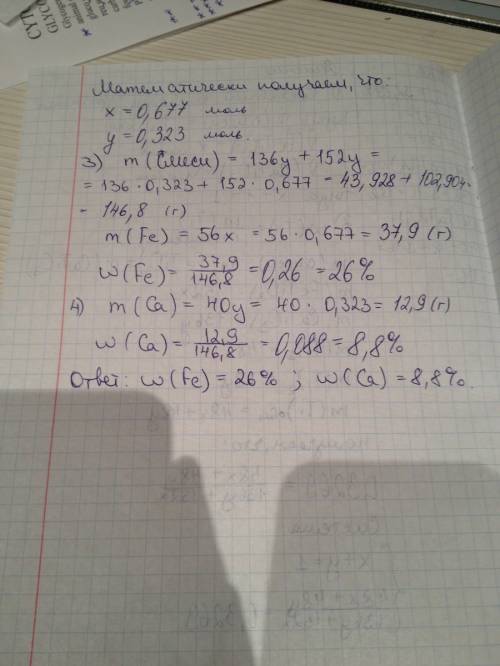 Математически получаем, что:
x = 0,677 моль
y = 0,323 моль.
3) m (смеси) = 136y + 152y =
= 136 · 0,323 + 152 · 0,677 = 43,928 + 102,904 =
= 146,8 (г)
m (Fe) = 56x = 56 · 0,677 = 37,9 (г)
w (Fe) = 37,9/146,8 = 0,26 = 26%
4) m (Ca) = 40y = 40 · 0,323 = 12,9 (г)
w (Ca) = 12,9/146,8 = 0,088 = 8,8%
Ответ: w (Fe) = 26% ; w (Ca) = 8,8%.